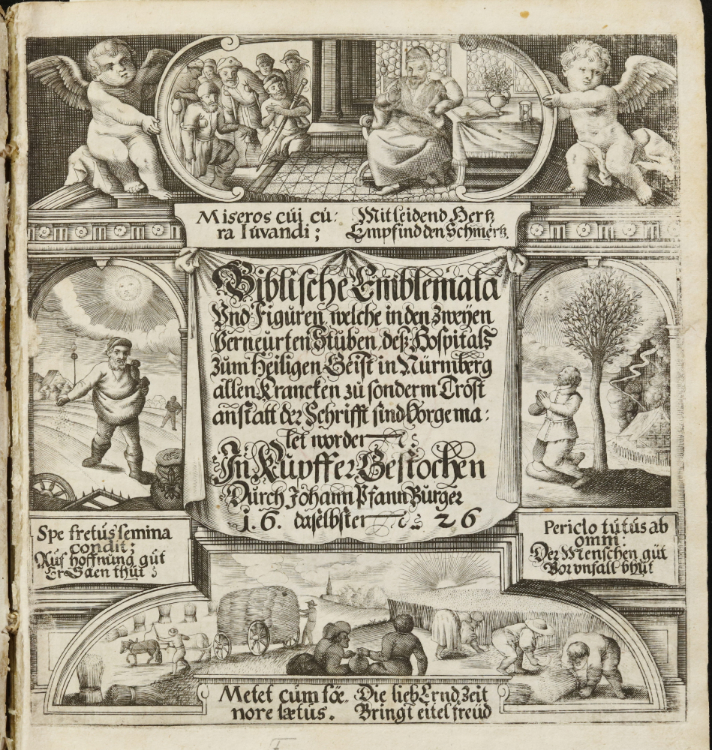 Miseros cúj cú:
ra Iúvandi;
Mitleidend Hertz
Empfind den Schmertz.
Biblische Emblemata
Und Figuren, welche in den Zweÿen
Verneurten Stuben deß Hospitals
Zum Heiligen Geist in Nürmberg
allen Krancken zú sonderm Trost
anstatt der Schrifft sind Vorgema:
let worden
In Kúpffer Gestochen
Dúrch Johann Pfann Búrger
1. 6. daselbsten 26
Spe fretús semina
condit;
Aúf hoffnúng gút
Er Säen thút
Periclo tútús ab
omni:
Der Menschen gút
Vor vnfall bhút
Metet cúm fœ-
nore lætús.
Die lieb Ernd Zeit
Bringt eitel freúd